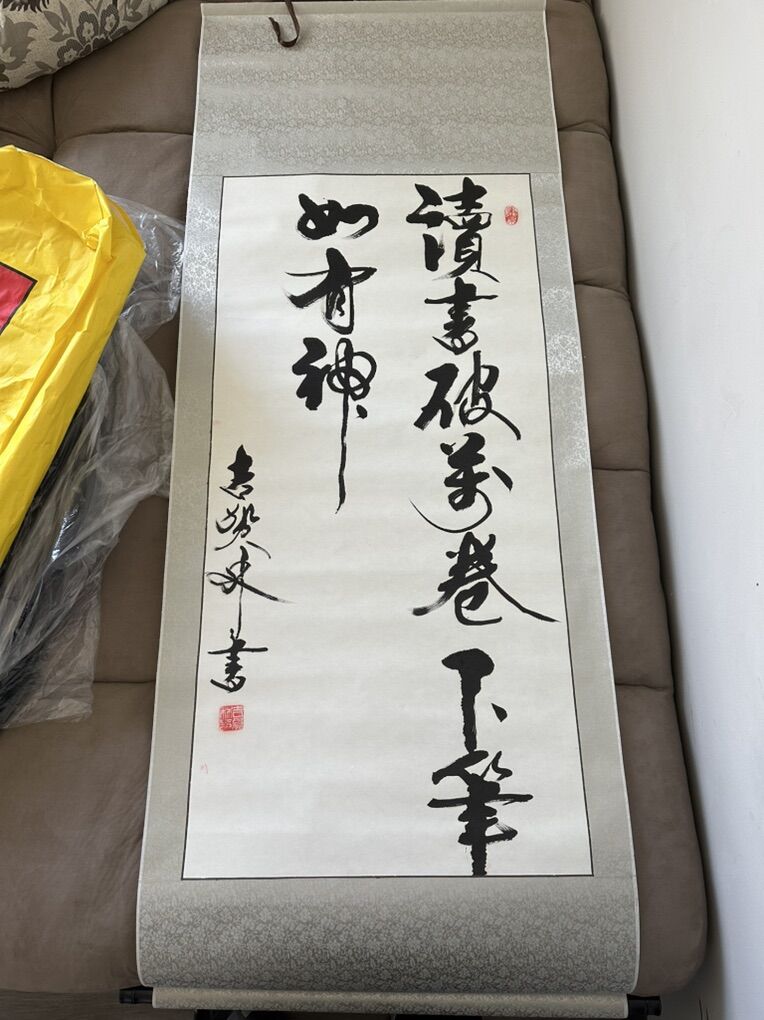 讀書破萬卷下筆
如有神
書